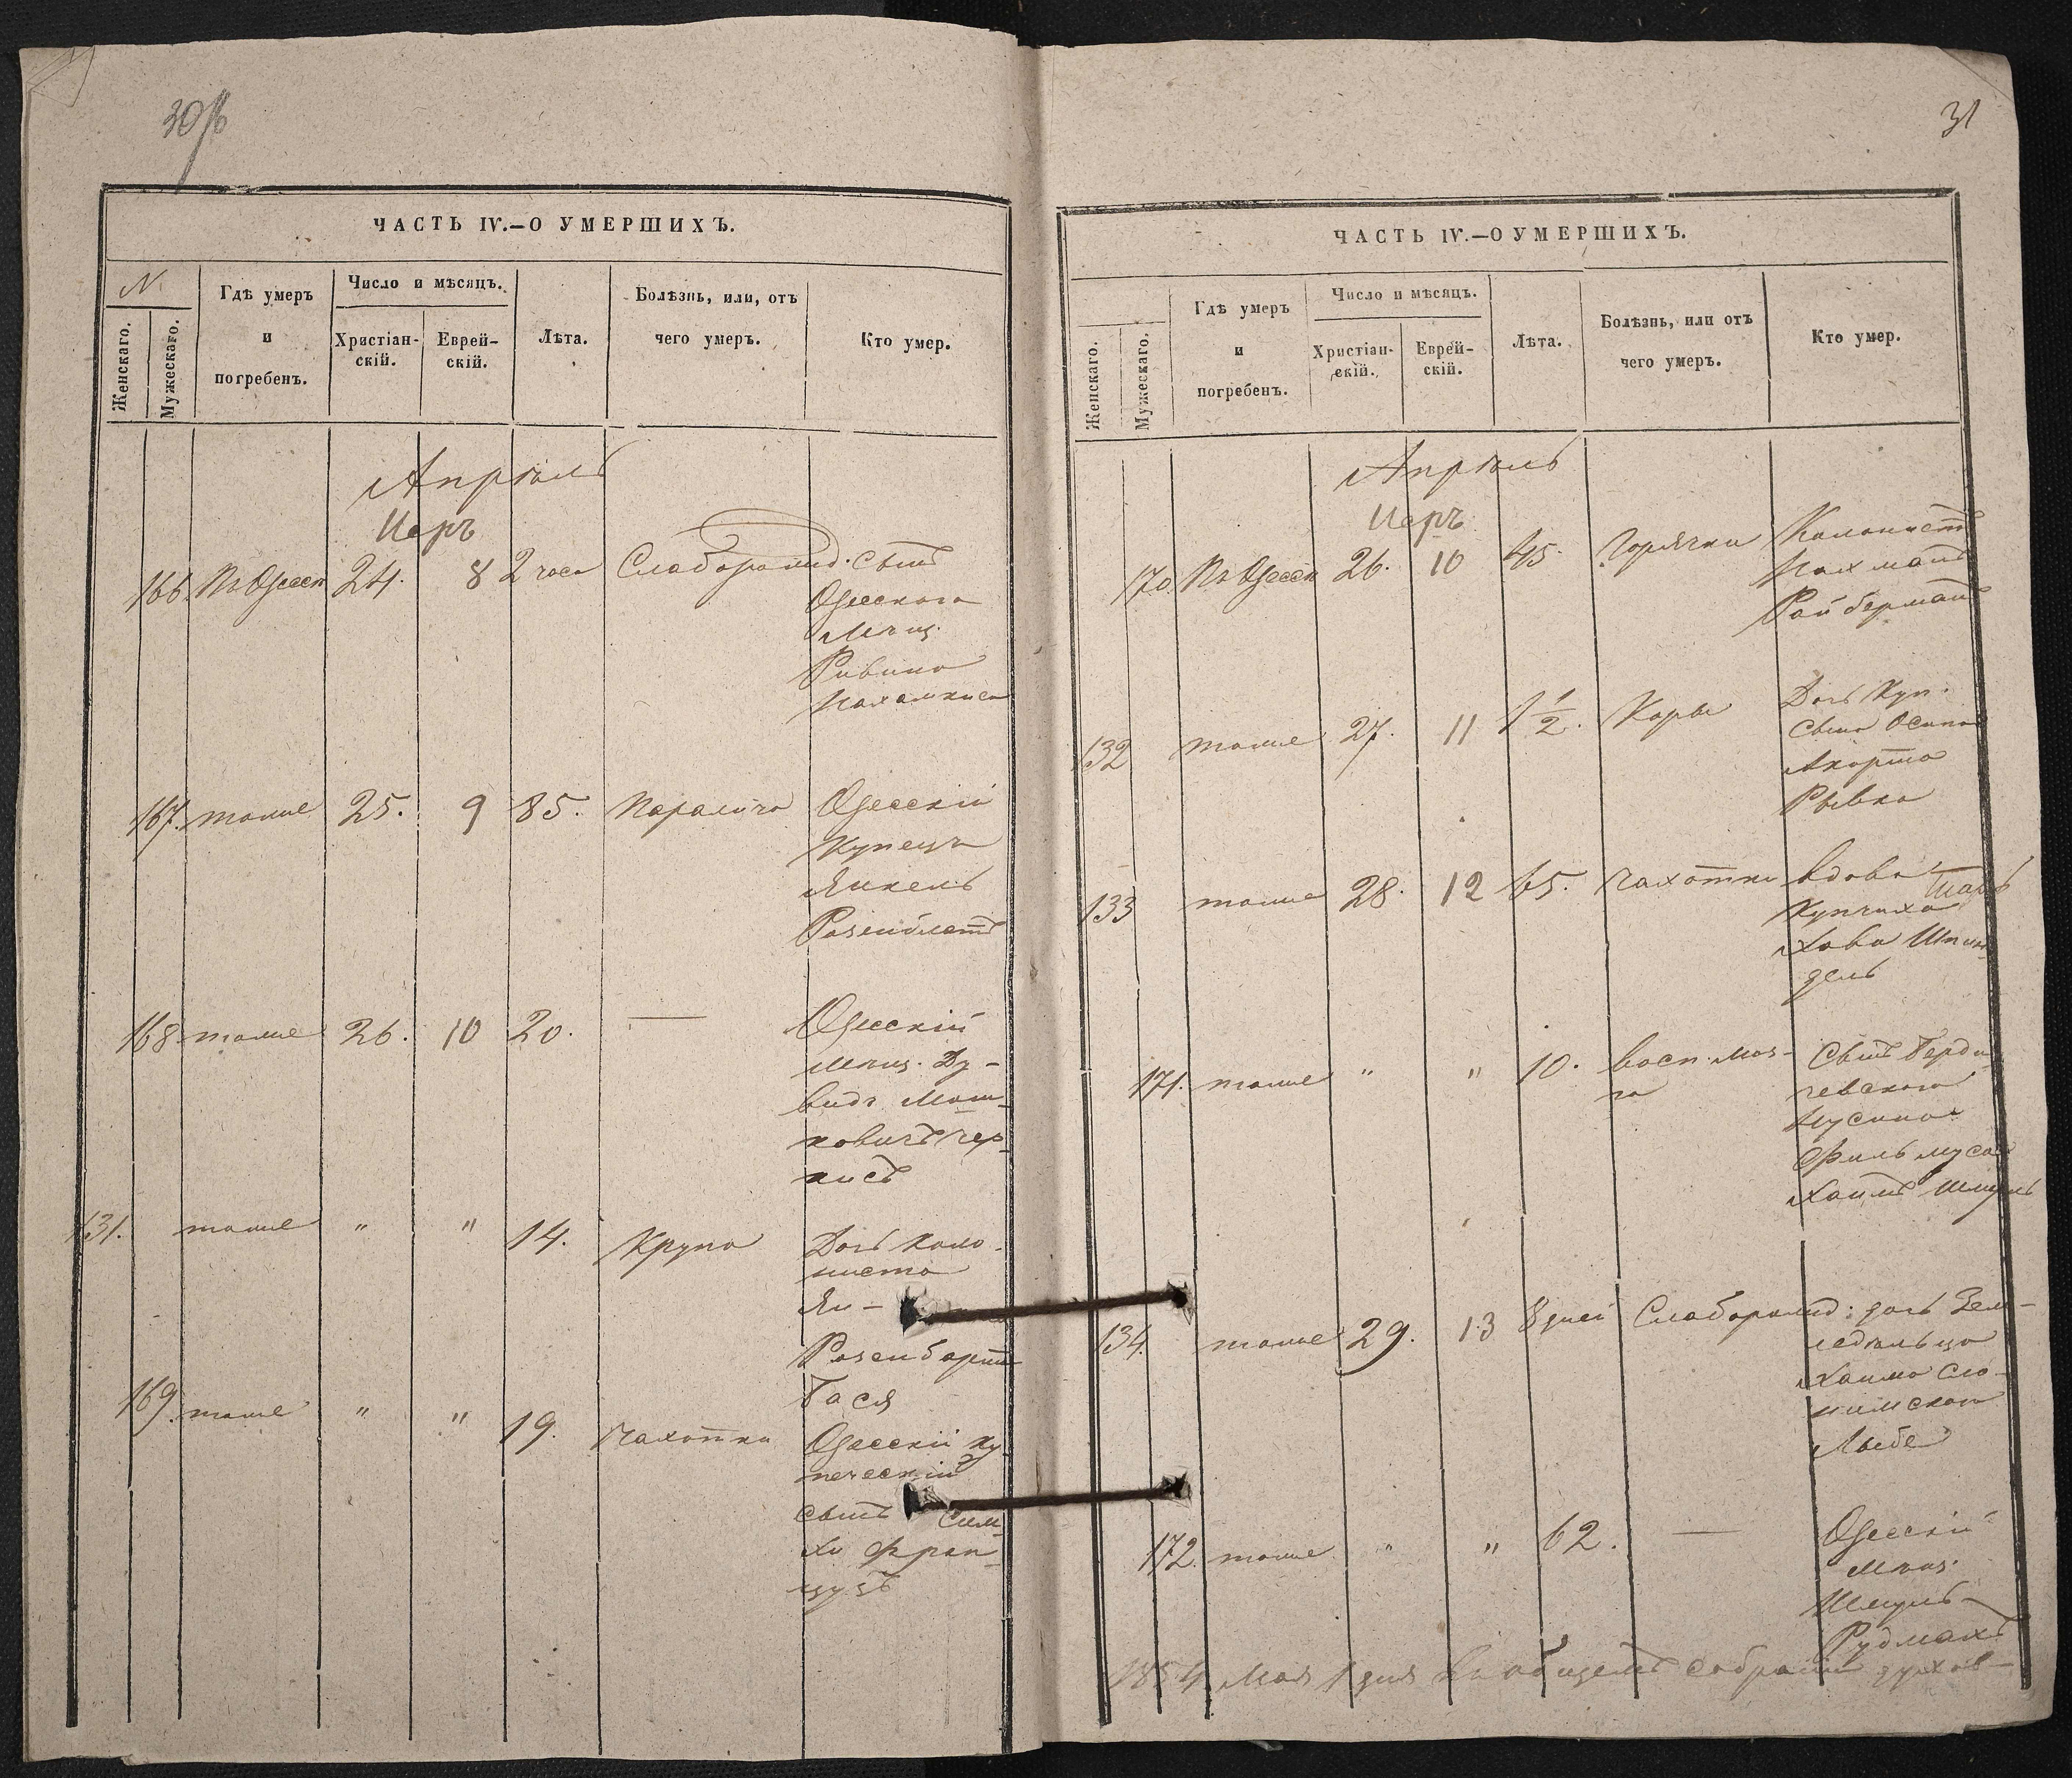 30/б
ЧАСТЬ IV.—О УМЕРШИХЪ.
N.
Женскаго.
Мужескаго.
Гдѣ умеръ
и
погребенъ.
Число и мѣсяцъ.
Христіан-
скій.
Еврей-
скій.
Лѣта.
Болѣзнь, или, отъ
чего умеръ.
Кто умер.
Апрѣль
Иаръ
166. Въ Одессѣ 24. 8 2 часа Слаборожд. Сынъ
Одесскаго
Мѣщ.
Рувина
167. тоже 25. 9 85. Паралича Одесскій
Купецъ
Янкель
Розенблатъ
168 тоже 26. 10 20. — Одесскій
мѣщ. Ду-
видъ Мош-
ковичъ Чер-
нисъ
131. тоже " " 14. Крупа Дочь коло-
ниста
Ян-
Розенбартъ
Бася
169. тоже " " 19. Чахотки Одесскій ку-
печескій
сынъ Сим-
ха Фран-
цузъ
31
ЧАСТЬ IV.—О УМЕРШИХЪ.
Женскаго.
Мужескаго.
Гдѣ умеръ
и
погребенъ.
Число и мѣсяцъ.
Христіан-
скій.
Еврей-
скій.
Лѣта.
Болѣзнь, или отъ
чего умеръ.
Кто умер.
Апрѣль
Иаръ
170. Въ Одессѣ 26. 10 45. Горячки Колонистъ
Нахманъ
Ройберманъ
132 тоже 27. 11 1 1/2. Коры Дочь Куп.
сына Осипа
Рывка
133 тоже 28. 12 65. Чахотки вдова
Купчиха
Хава Шпин-
дель
171. тоже " " 10. восп. моз-
га
Сынъ Берди-
чевскаго
Хаимъ Шмуль
134. тоже 29. 13 8 дней Слаборожд: дочь Зем-
ледѣльца
Хаима Сло-
нимскаго
172. тоже " " 62. — Одесскій
мѣщ.
Шмуль
Рудманъ
1854 Мая 1 дня въ общемъ собраніи духов-